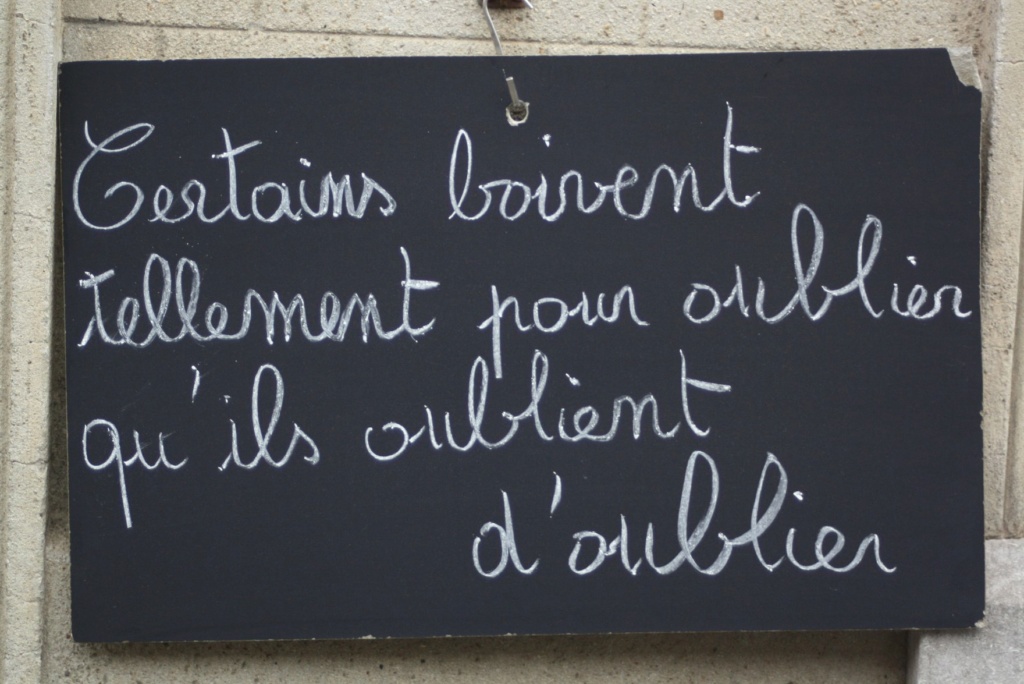 Certains boivent
tellement pour oublier
qu'ils oublient
d'oublier